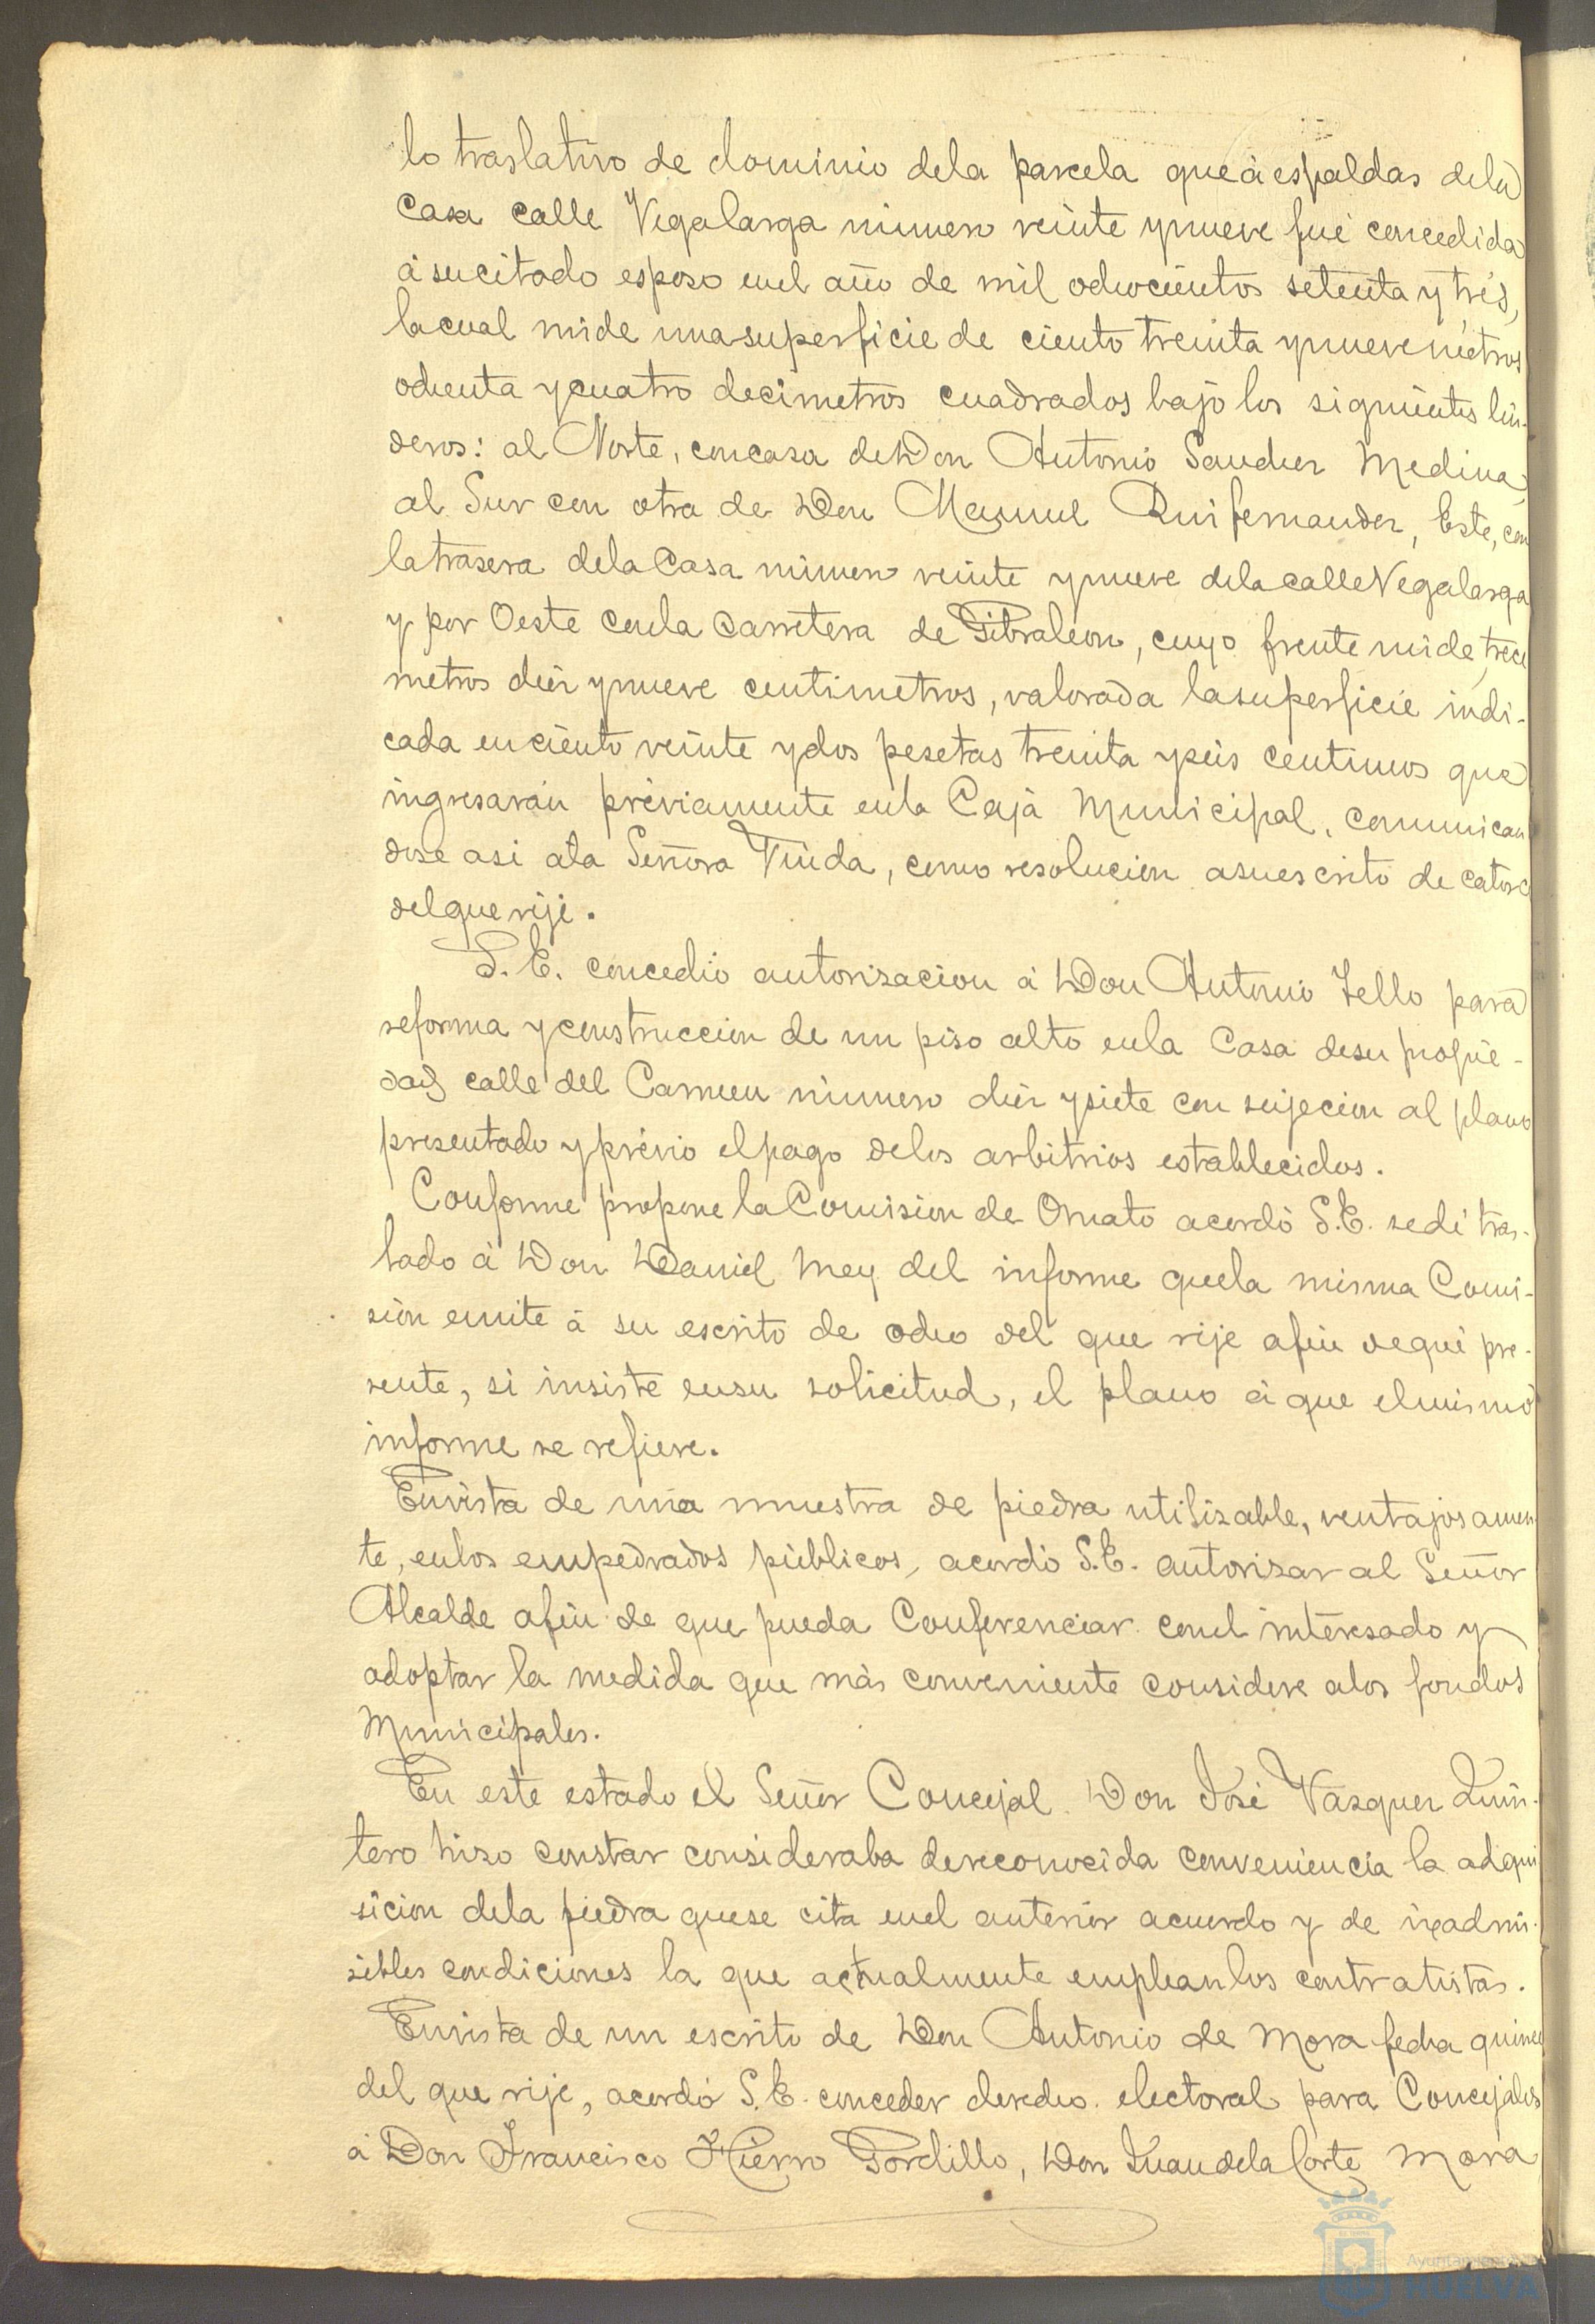 lo traslativo de dominio dela parcela que á espaldas dela
Casa calle Vegalarga número veinte y nueve fué concedida
á su citado esposo en el año de mil ochocientos setenta y trés,
la cual mide una superficie de ciento treinta y nueve metros
ochenta y cuatro decimetros cuadrados bajo los siguientes lin-
deros: al Norte, con casa de Don Antonio Sanchez Medina,
al Sur con otra de Don Manuel Ruifernandez, Este, con
la trasera dela Casa número veinte y nueve dela calle Vegalarga
y por Oeste conla Carretera de Gibraleon, cuyo frente mide trece
metros diez y nueve centimetros, valorada la superficie indi-
cada en ciento veinte y dos pesetas treinta y seis centimos que
ingresarán préviamente enla Caja Municipal, comunican
dose asi ala Señora Viuda, como resolucion a su escrito de catorce
del que rije.
S. E. concedió autorizacion á Don Antonio Tello para
reforma y construccion de un piso alto enla Casa desu propie-
dad calle del Carmen número diez y siete con sujecion al plano
presentado y prévio el pago delos arbitrios establecidos.
Conforme propone la Comision de Ornato acordó S.E. se dé tras-
lado á Don Daniel Mey del informe quela misma Comi-
sión emite á su escrito de ocho del que rije afin de qué pre-
sente, si insiste en su solicitud, el plano á que el mismo
informe se refiere.
En vista de una muestra de piedra utilizable, ventajosamen
te, enlos empedrados públicos, acordó S.E. autorizar al Señor
Alcalde afin de que pueda Conferenciar conel interesado y
adoptar la medida que más conveniente considere alos fondos
Municipales.
En este estado el Señor Concejal Don José Vazquez Quin-
tero hizo constar consideraba de reconocida conveniencia la adqui
sicion dela piedra que se cita en el anterior acuerdo y de inadmi-
sibles condiciones la que actualmente emplean los contratistas.
En vista de un escrito de Don Antonio de Mora fecha quince
del que rije, acordó S.E. conceder derecho electoral para Concejales
á Don Francisco Hierro Gordillo, Don Juan dela Corte Mora
Ayuntamiento de
HUELVA